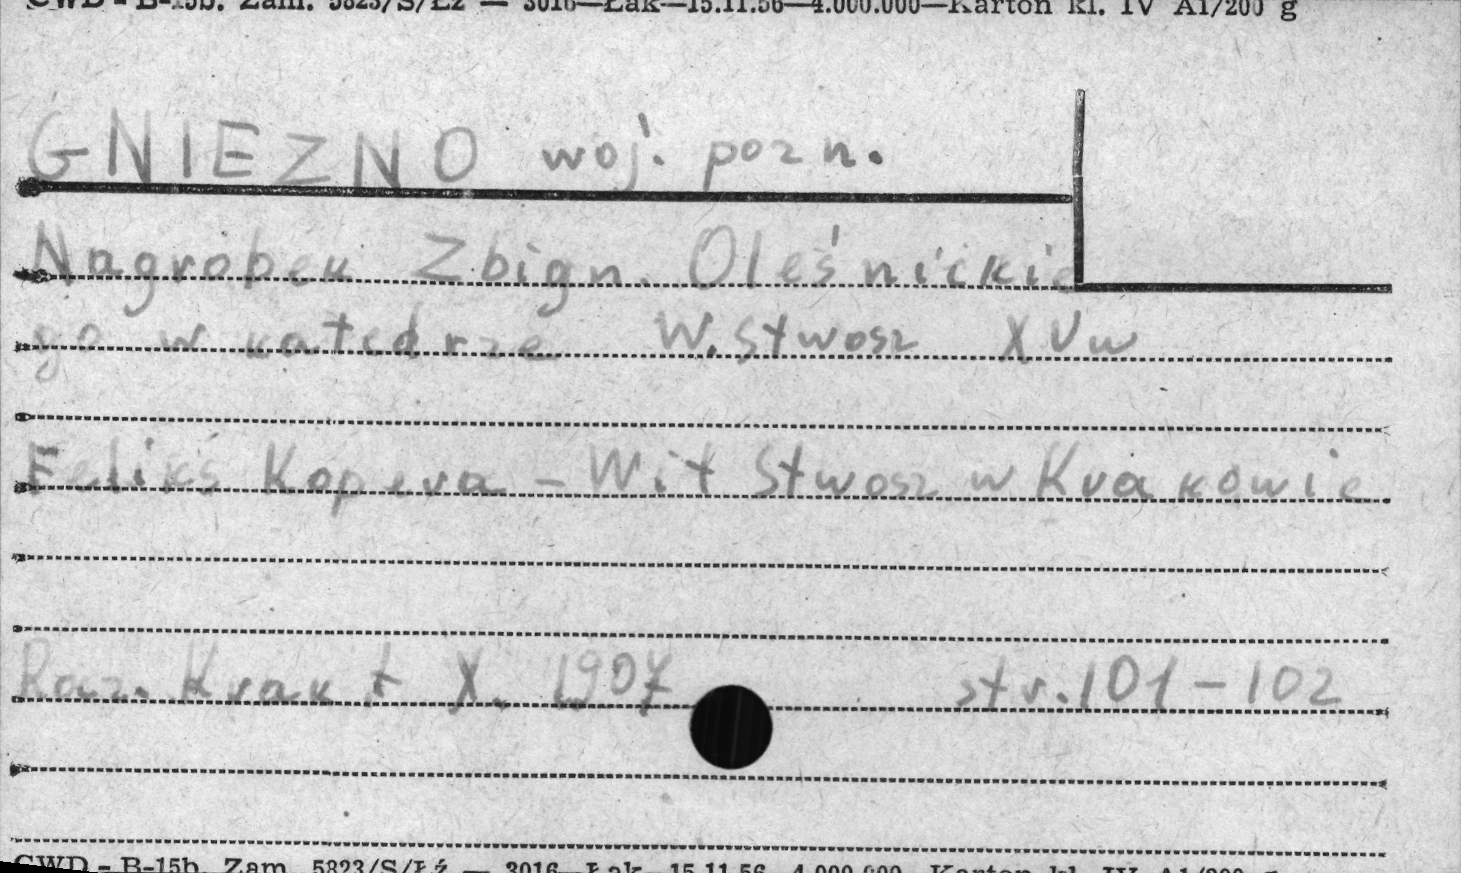 CWD - B-15b. Zam. 5823/S/Łź — 3016—Łak—15.11.56—4.000.000—Karton kl. IV A1/200 g
GNIEZNO woj. pozn.
Nagrobek Zbign. Oleśnickie
go w katedrze W. Stwosz XVw
Feliks Kopera - Wit Stwosz w Krakowie
Rocz. Krak t X. 1907 str. 101-102
CWD - B-15b. Zam. 5823/S/Łź — 3016—Łak—15.11.56—4.000.000—Karton kl. IV A1/200 g